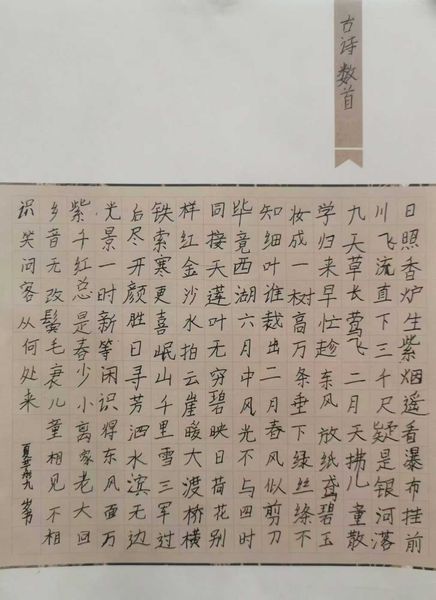 古诗数首
日照香炉生紫烟遥看瀑布挂前
川飞流直下三千尺疑是银河落
九天草长莺飞二月天拂儿童散
学归来早忙趁东风放纸鸢碧玉
妆成一树高万条垂下绿丝绦不
知细叶谁裁出二月春风似剪刀
毕竟西湖六月中风光不与四时
同接天莲叶无穷碧映日荷花别
样红金沙水拍云崖暖大渡桥横
铁索寒更喜岷山千里雪三军过
后尽开颜胜日寻芳泗水滨无边
光景一时新等闲识得东风面万
紫千红总是春少小离家老大回
乡音无改鬓毛衰儿童相见不相
识笑问客从何处来